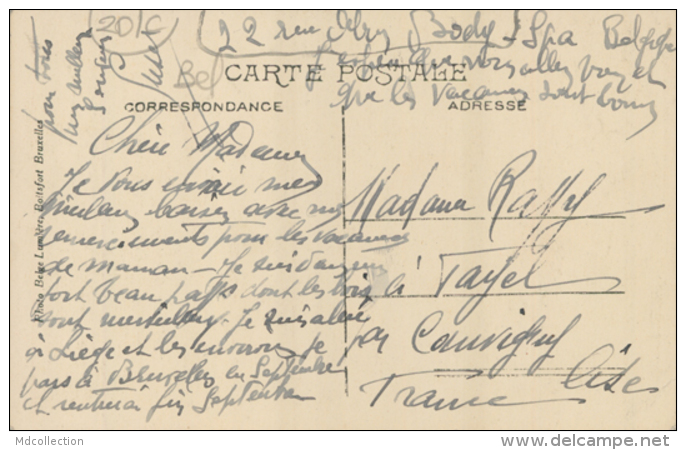 (20 F
22 rue Body - Spa Belgique
que vous allez bien et
que les vacances sont bonnes
pour tous
CARTE POSTALE
CORRESPONDANCE
ADRESSE
Chère Madame
Je vous envoie mes
meilleurs baisers avec mes
remerciements pour les vacances
de Maman - Je suis dans un
fort beau pays dont les bois
sont merveilleux. Je suis allée
à Liège et les environs je
pars à Bruxelles en Septembre
et rentrerai fin Septembre
Madame Raffy
à Tayel
par Couvigny
Oise
France
Photo Belge Lumière, Boitsfort Bruxelles
Mdcollection
www.delcampe.net